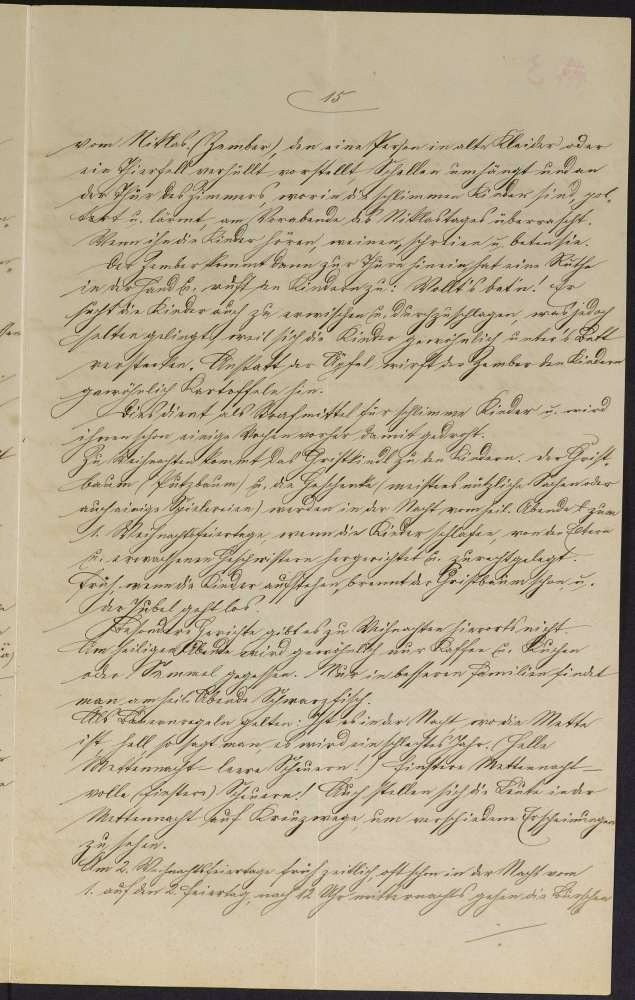 15
vom Niklas (Zember), den eine Person in alte Kleider oder
ein Tierfell verhüllt vorstellt, Schellen umhängt und an
der Thür des Zimmers, worin die schlimmen Kinder sind, pol-
tert u. lärmt, am Vorabende des Niklastages überrascht.
Wenn ihn die Kinder hören, weinen, schreien u. beten sie.
Der Zember kommt dann zur Thüre hinein, hat eine Ruthe
in der Hand u. ruft den Kindern zu: Wollt's betn! Er
sucht die Kinder auch zu erwischen u. durchzuschlagen, was jedoch
selten gelingt, weil sich die Kinder gewöhnlich unter's Bett
verstecken. Anstatt der Äpfel wirft der Zember den Kindern
gewöhnlich Kartoffeln hin.
Dies dient als Strafmittel für schlimme Kinder u. wird
ihnen schon einige Wochen vorher damit gedroht.
Zu Weihnachten kommt das Christkindl zu den Kindern. Der Christ-
baum (Putzbaum) u. die Geschenke (meistens nützliche Sachen oder
auch einige Spielereien) werden in der Nacht vom heil. Abende zum
1. Weihnachtsfeiertage, wenn die Kinder schlafen, von den Eltern
u. erwachsenen Geschwistern hergerichtet u. zurechtgelegt.
Früh, wenn die Kinder aufstehen, brennt der Christbaum schon, u.
der Jubel geht los.
Besondere Gerichte gibt es zu Weihnachten hierorts nicht.
Am heiligen Abende wird gewöhnlich nur Kaffee u. Kuchen
oder Semmel gegessen. Nur in besseren Familien findet
man am heil. Abende Schwarzfisch.
Als Bauernregeln gelten: Ist es in der Nacht, wo die Mette
ist, hell, so sagt man, es wird ein schlechtes Jahr. (Helle
Mettennacht – leere Scheuern!) Finstere Mettennacht –
volle (finstere) Scheuern! Auch stellen sich die Leute in der
Mettennacht auf Kreuzwege, um verschiedene Erscheinungen
zu sehen.
Am 2. Weihnachtsfeiertage früh zeitlich, oft schon in der Nacht vom
1. auf den 2. Feiertag, nach 12 Uhr mitternachts gehen die Burschen